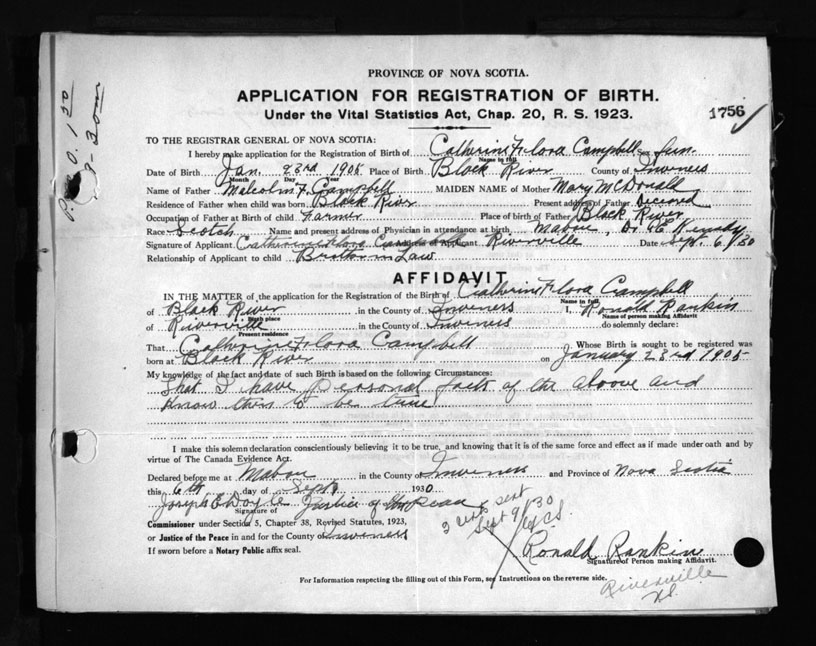 PROVINCE OF NOVA SCOTIA.
APPLICATION FOR REGISTRATION OF BIRTH.
Under the Vital Statistics Act, Chap. 20, R. S. 1923.
1756
TO THE REGISTRAR GENERAL OF NOVA SCOTIA:
I hereby make application for the Registration of Birth of Catherine Flora Campbell Sex Fem.
Name in full
Date of Birth Jan. 23rd 1905 Place of Birth Black River County of Inverness
Month Day Year
Name of Father Malcolm F. Campbell MAIDEN NAME of Mother Mary McDonald
Residence of Father when child was born Black River Present address of Father Deceased
Occupation of Father at Birth of child Farmer Place of birth of Father Black River
Race Scotch Name and present address of Physician in attendance at birth Mabou, Dr.
Signature of Applicant Catherine Flora Campbell Riverville Date Sept. 6/30
Relationship of Applicant to child Brother in Law
AFFIDAVIT
IN THE MATTER of the application for the Registration of the Birth of Catherine Flora Campbell
Name in full
of Black River in the County of Inverness I, Ronald Rankin
Birth place Name of person making Affidavit
of Riverville in the County of Inverness do solemnly declare:
Present residence
That Catherine Flora Campbell Whose Birth is sought to be registered was
born at Black River on January 23rd 1905
My knowledge of the fact and date of such Birth is based on the following Circumstances:
That I have personal facts of the above and
know them to be true
I make this solemn declaration conscientiously believing it to be true, and knowing that it is of the same force and effect as if made under oath and by
virtue of The Canada Evidence Act.
Declared before me at Mabou in the County of Inverness and Province of Nova Scotia
this 6th day of Sept 1930
Joseph E Doyle Justice of the Peace
Signature of
2 certs sent
Sept 9/30
Commissioner under Section 5, Chapter 38, Revised Statutes, 1923,
or Justice of the Peace in and for the County of Inverness
If sworn before a Notary Public affix seal.
Ronald Rankin
Signature of Person making Affidavit.
For Information respecting the filling out of this Form, see Instructions on the reverse side.
Riverville
NS